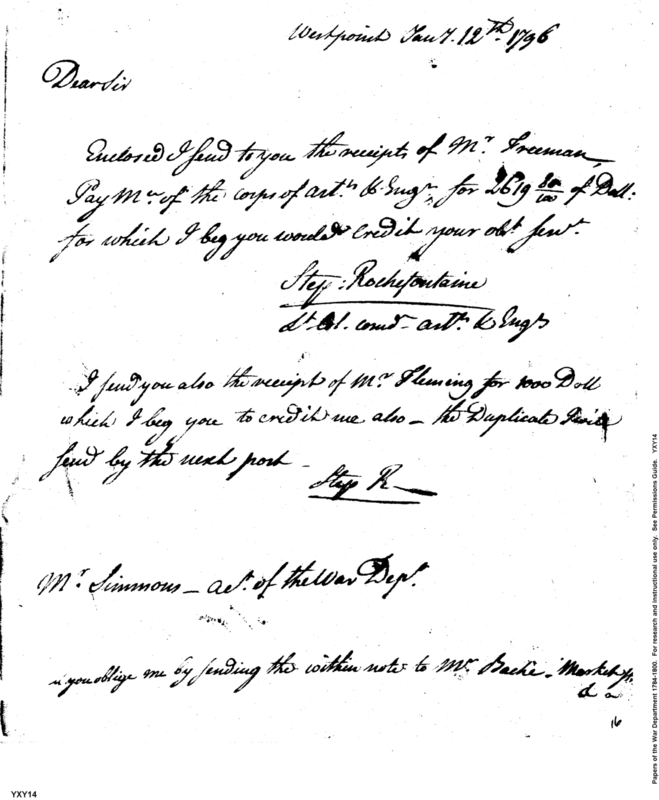 Westpoint Jany. 12th. 1796
Dear Sir
Enclosed I send to you the receipts of Mr. Freeman,
Pay Mr. of the corps of art.s & Engrs, for 2619 80/100 of Doll:
for which I beg you would credit your obt. servt.
Step: Rochefontaine
Lt Col. comd art.s & Engrs
I send you also the receipt of Mr. Fleming for 1000 Doll
which I beg you to credit me also – the Duplicate I will
send by the next post –
Step R
Mr. Simmons – act. of the War Dept.
you oblige me by sending the within note to Mr. Bache. Market
16
YXY14
Papers of the War Department 1784-1800. For research and instructional use only. See Permissions Guide. YXY14